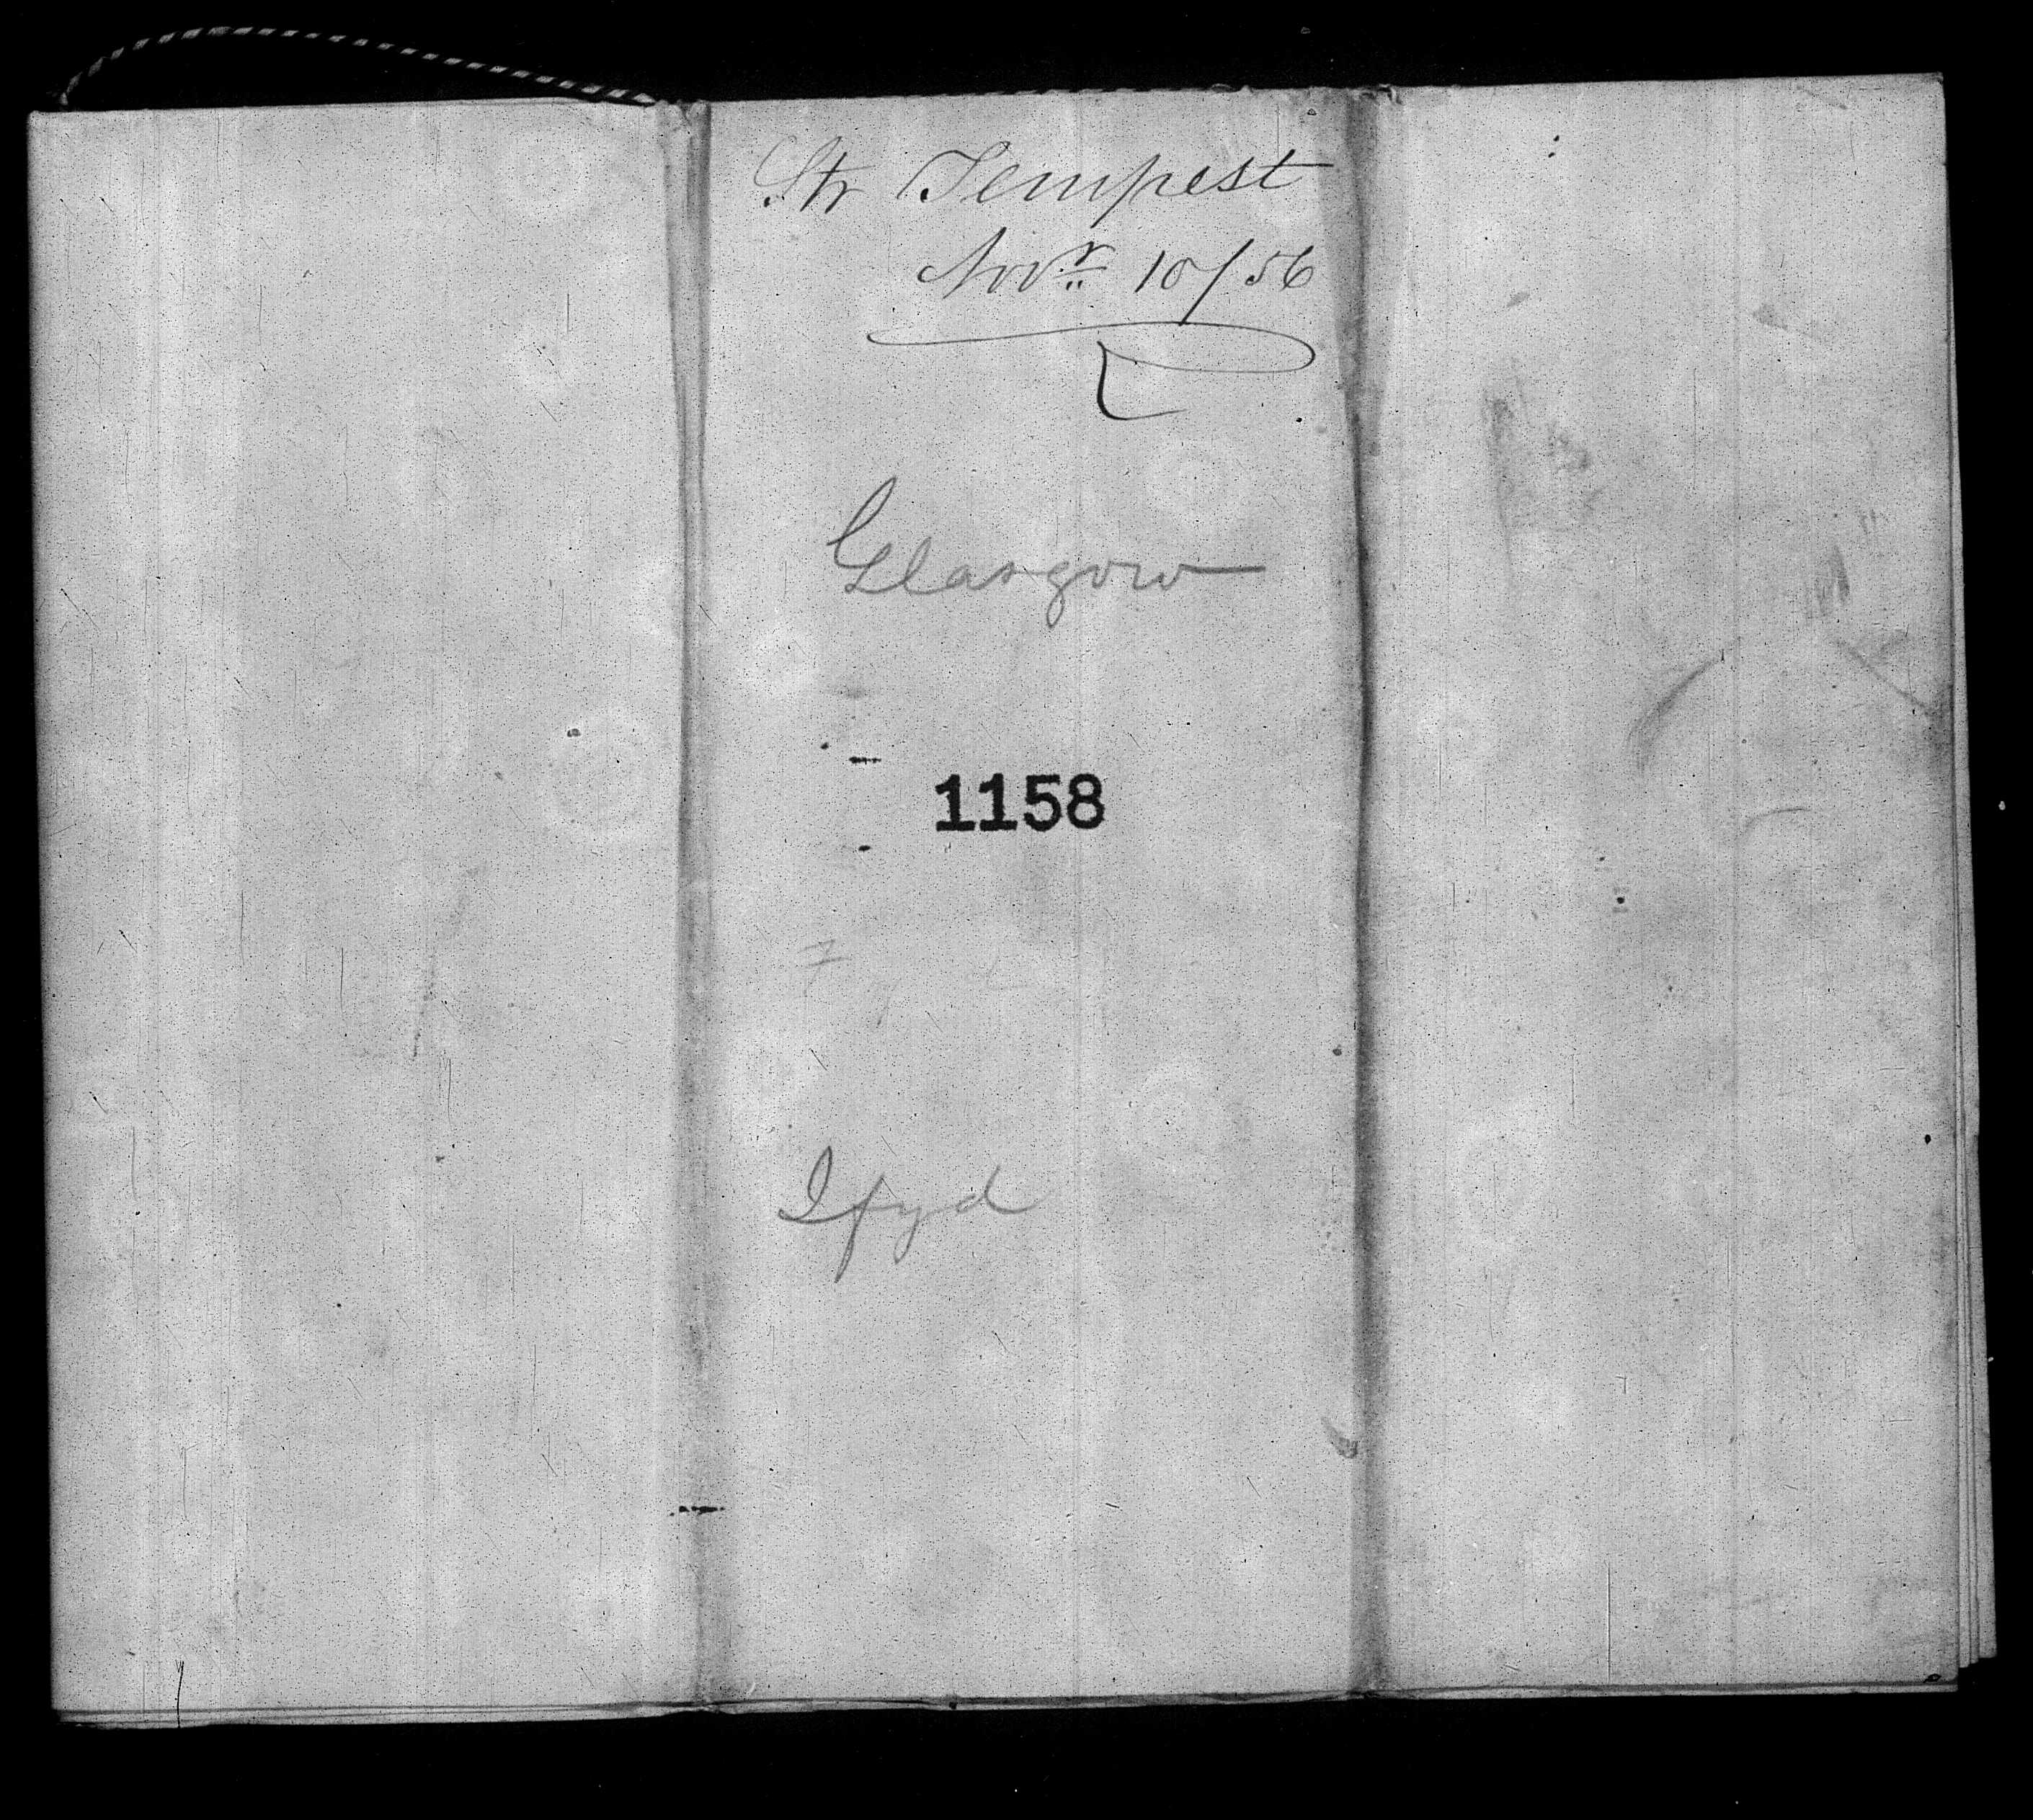 Str Tempest
Novr 10/56
Glasgow
1158
7
Ifyd